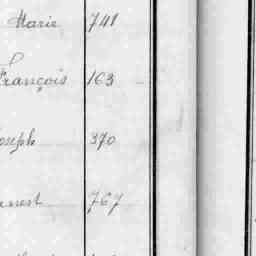 Marie 741
François 163
Joseph 370
Ernest 767